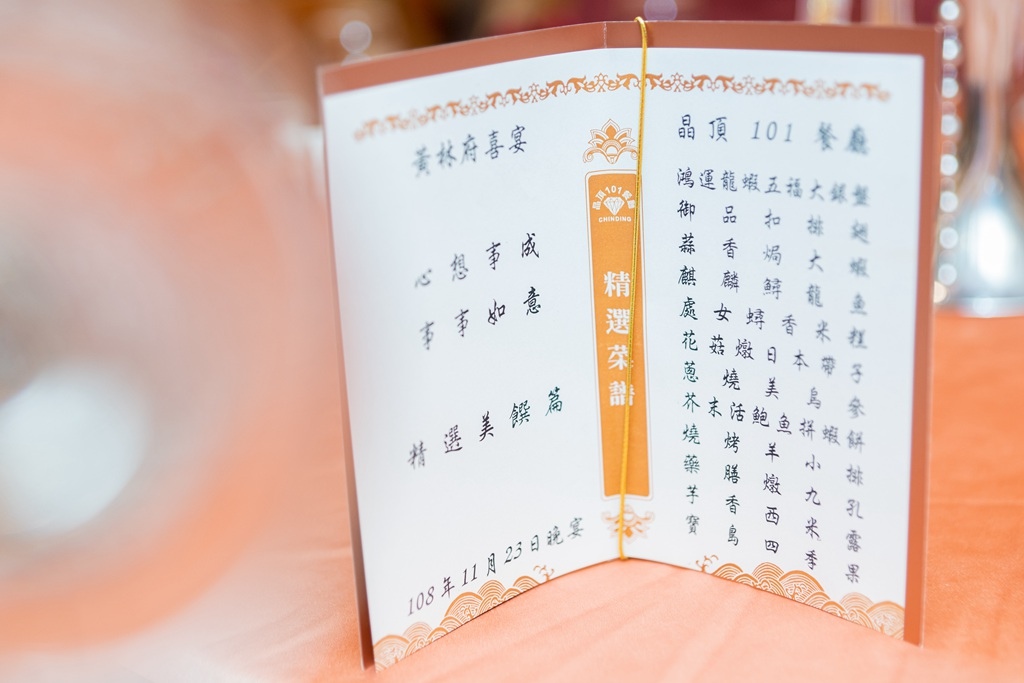 黃林府喜宴
心想事成
事事如意
精選美饌篇
108年11月23日晚宴
晶頂101餐廳
CHINDING
精選菜譜
晶頂 101 餐廳
鴻運龍蝦五福大銀盤
御品扣排翅
蒜香焗大蝦
麒麟鱘龍魚
處女蟳香米糕
花菇燉日本帶子
蔥燒美島參
芥末活鮑魚拼蝦餅
燒烤羊小排
藥膳燉九孔
芋香西米露
寶島四季果